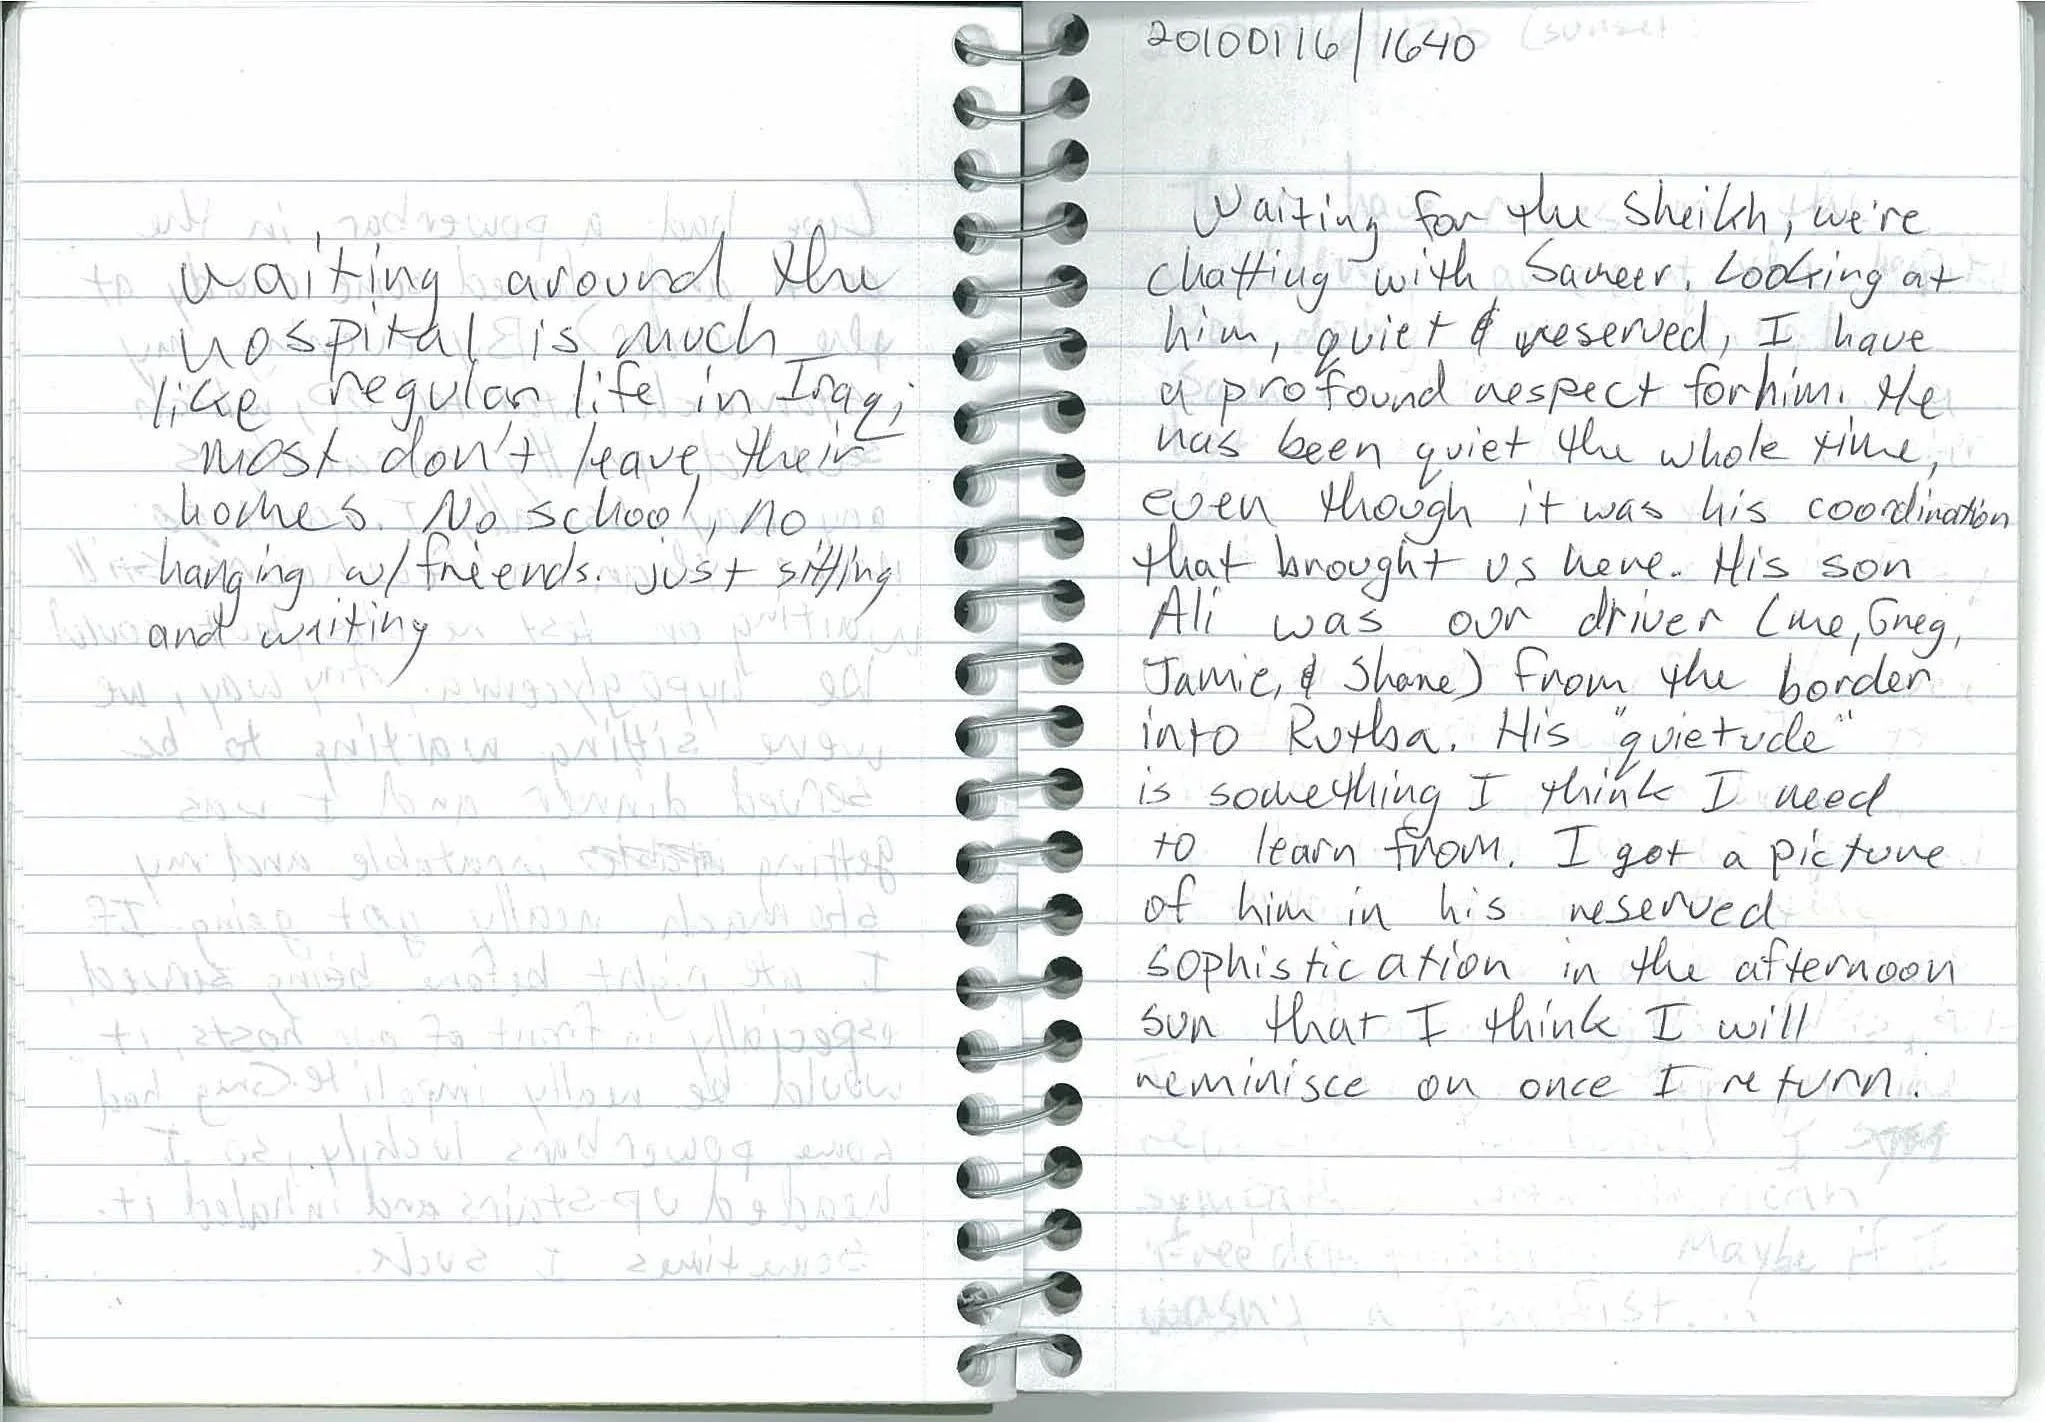 waiting around the
hospital is much
like regular life in Iraq;
most don't leave their
homes. No school, no
hanging w/friends. just sitting
and waiting
20100116/1640
Waiting for the Sheikh, we're
chatting with Sameer. Looking at
him, quiet & reserved, I have
a profound respect for him. He
has been quiet the whole time,
even though it was his coordination
that brought us here. His son
Ali was our driver (me, Greg,
Jamie, & Shane) from the border
into Rutba. His "quietude"
is something I think I need
to learn from. I got a picture
of him in his reserved
sophistication in the afternoon
sun that I think I will
reminisce on once I return.